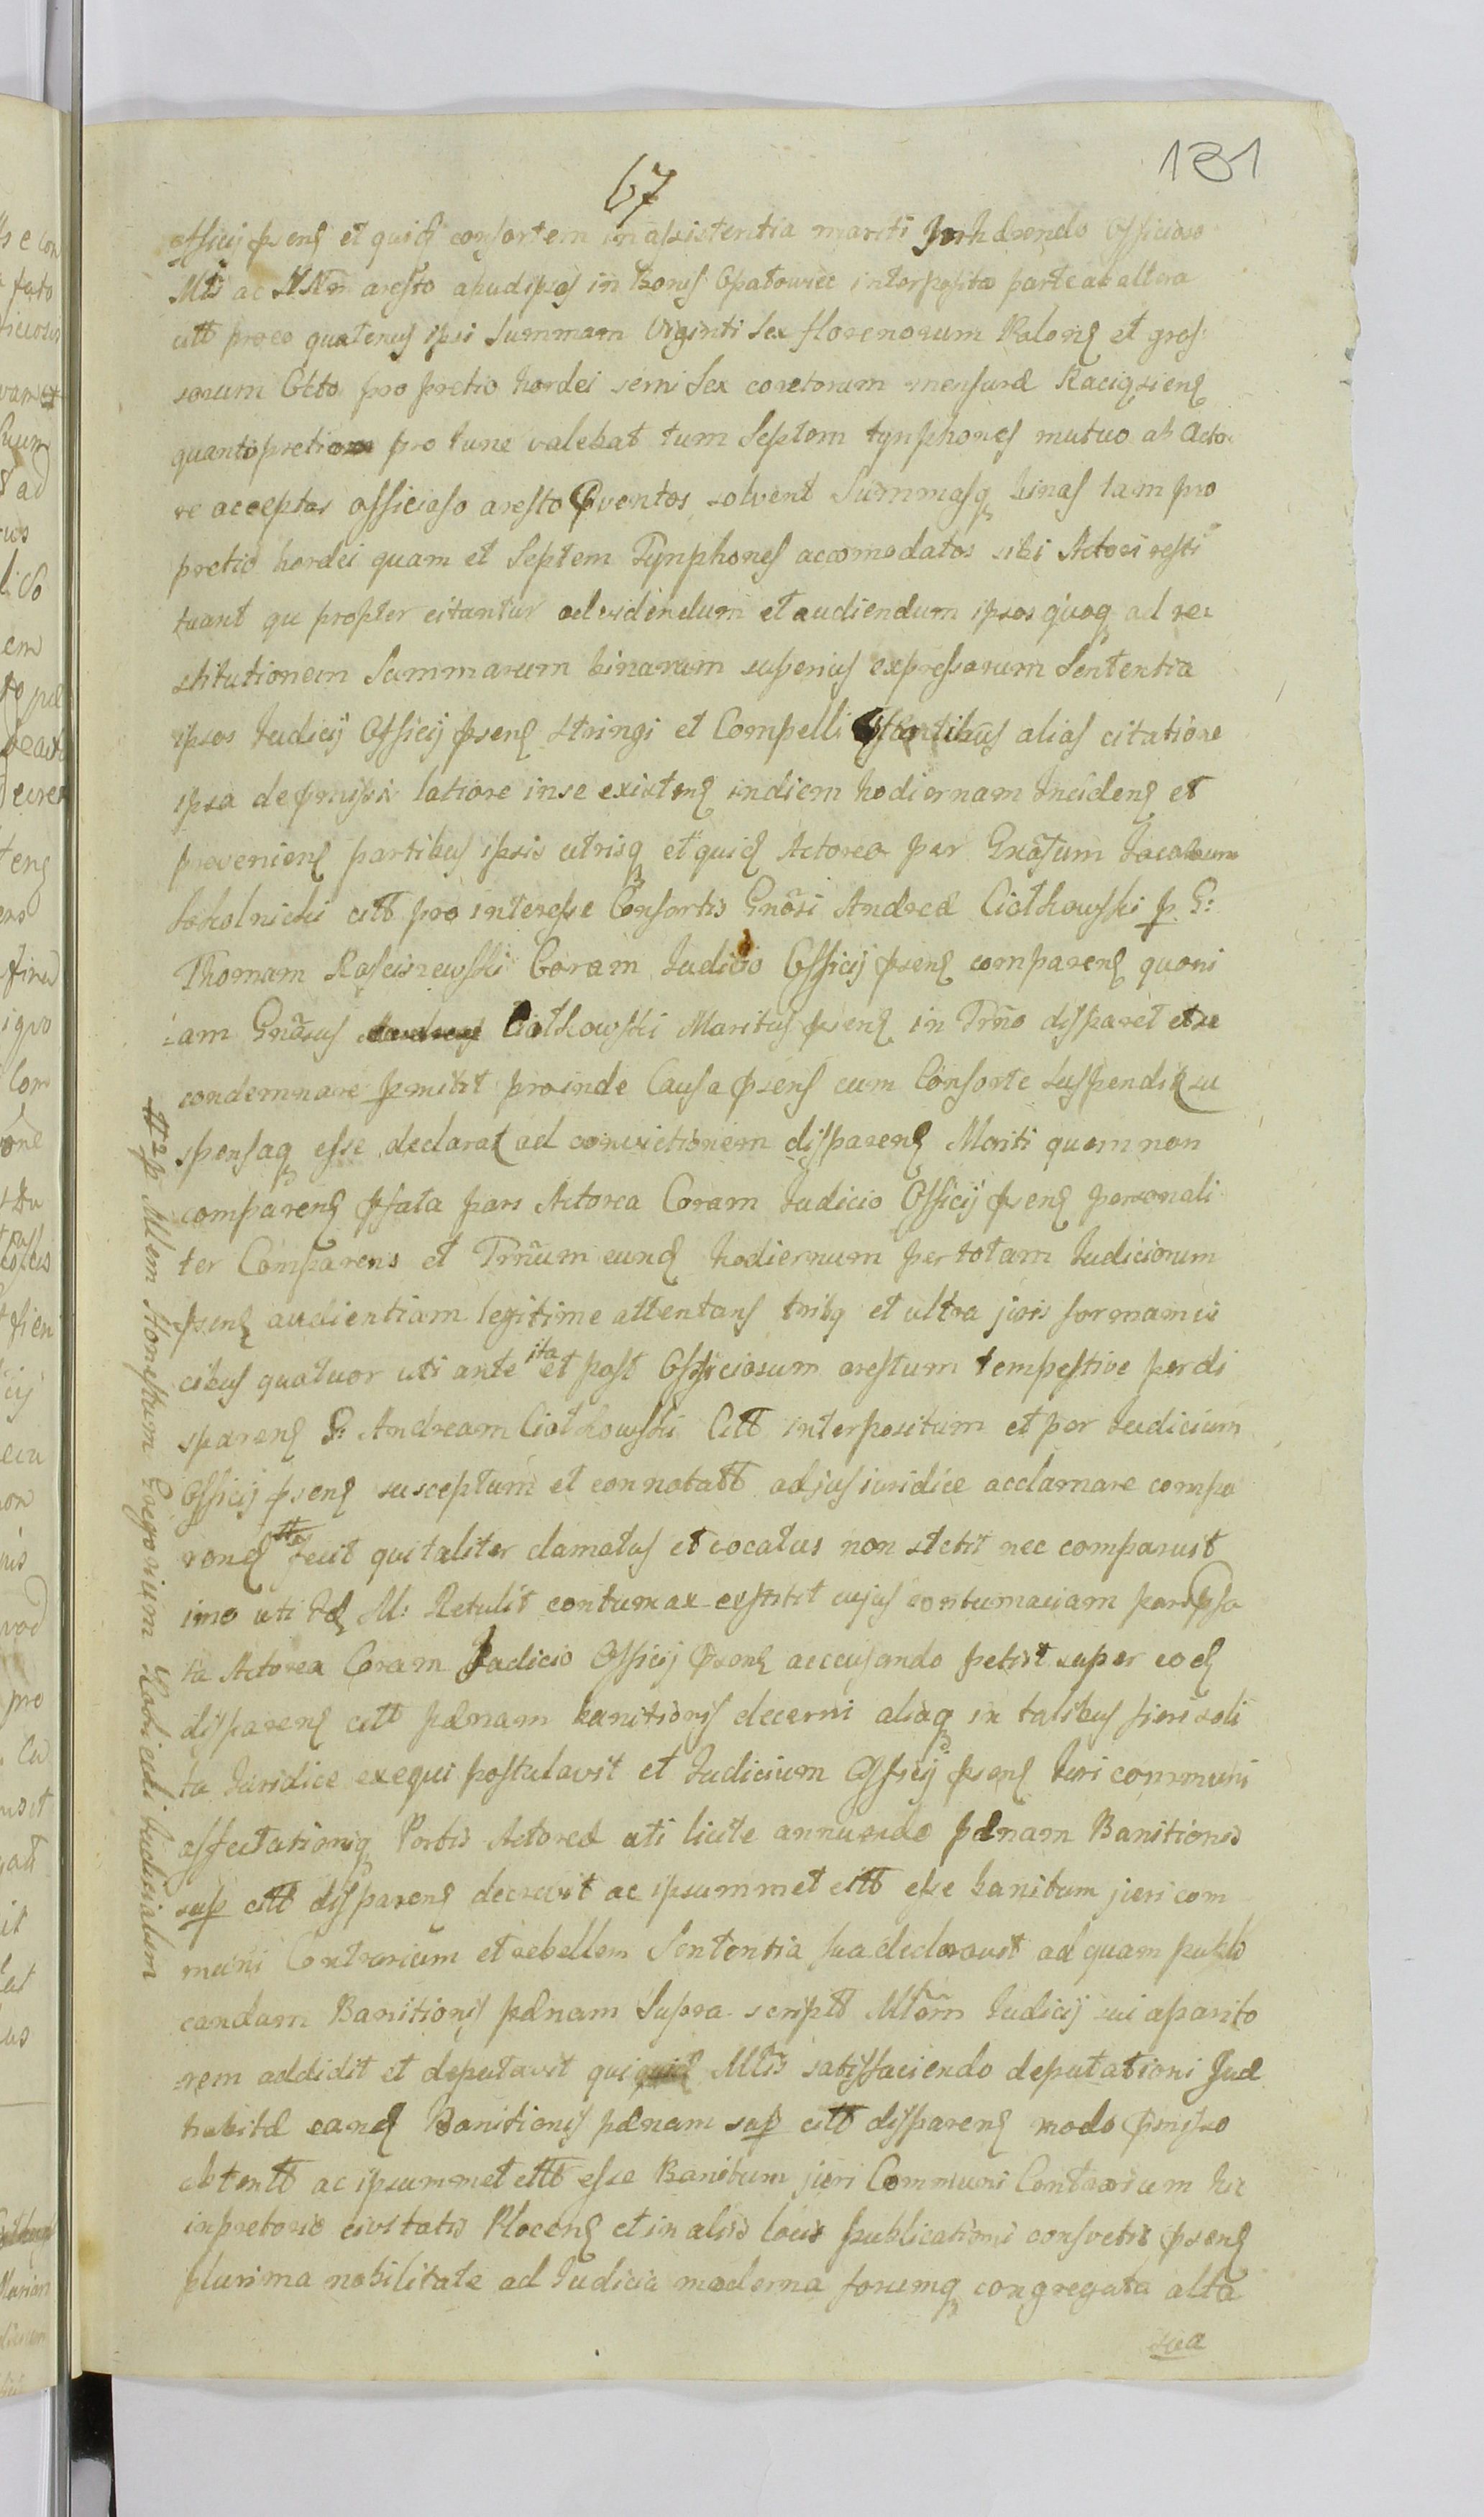 131
67
officij psens et quid consortem in assistentia mariti Inhærendo Officioso
Mtis ac aresto apud ipsos in Bonis Opatowiec interposito parte ab altera
citt pro eo quatenus ipsi Summam Viginti Sex florenorum Polons et gros
sorum Octo pro pretio hordei semi Sex coretorum mensuræ Raciąziens
quanto pretio pro tunc valebat tum Septem tynphones mutuo ab Acto
re acceptos officioso aresto pventos solvent Summasq binas tam pro
pretio hordei quam et Septem Tynphones accomodatos sibi Actori resti
tuant qu propter citantur ad videndum et audiendum ipsos quoq ad re
stitutionem Summarum binarum superius expressarum Sententia
ipsos Iudicij Officij psens stringi et Compelli alias citatione
ipsa de pmissis latiore in se existens in diem hodiernam Incidens et
proveniens partibus ipsis utrisq et quid Actorea per Gnāsum Iacobum
Sokolnicki citt pro interesse Consortis Gnōsi Andreæ Ciołkowski p G:
Thomam Rosciszewski Coram Iudicio Officij psens comparens quoni
am Gnāsus Ciołkowski Maritus psens in Trño disparet et se
condemnare pmitit proinde Causa psens cum Consorte suspendit su
spensaq esse declarat ad convictionem disparens Mariti quem non
comparens pfata pars Actorea Coram Iudicio Officij psens personali
ter Comparens et Trñum eund hodiernum per totam Iudiciorum
psens audientiam legitime attentans tribq et ultra juris formam vi
cibus quatuor uti ante ita et post Officiosum arestum tempestive per di
sparens G: Andream Ciołkowski Citt interpositum et per Iudicium
Officij psens susceptum et connotatt ad jus iuridice acclamare compa
rens fecit qui taliter clamatus et vocatus non stetit nec comparuit
imo uti Id M: Retulit contumax extitit cujus contumaciam pars pfa
ta Actorea Coram Iudicio Officij psens accusando petiit super eod
disparens citt pænam banitionis decerni aliaq in talibus fieri soli
ta Iuridice exequi postulavit et Iudicium Officij psens Iuri communi
affectationiq Partis Actoreæ uti licite annuendo pænam Banitionis
sup citt disparens decrevit ac ipsummet citt esse banitum juri com
muni Contrarium et rebellem Sententia sua declaravit ad quam publi
candam Banitionis pænam Supra scriptt Mtēm Iudicij sui aparito
rem addidit et deputavit qui quid Mtis satisfaciendo deputationi Iud
habitæ eand Banitionis pænam sup citt disparens modo pmisso
obtentt ac ipsummet citt esse Banitum juri Communi Contrarium hic
in pretorio civitatis Plocens et in aliis locis publicationi consvetis psens
plurima nobilitate ad Iudicia moderna forumq congregata alta
sua
Mtem Honestum Gregorium Iudicialem